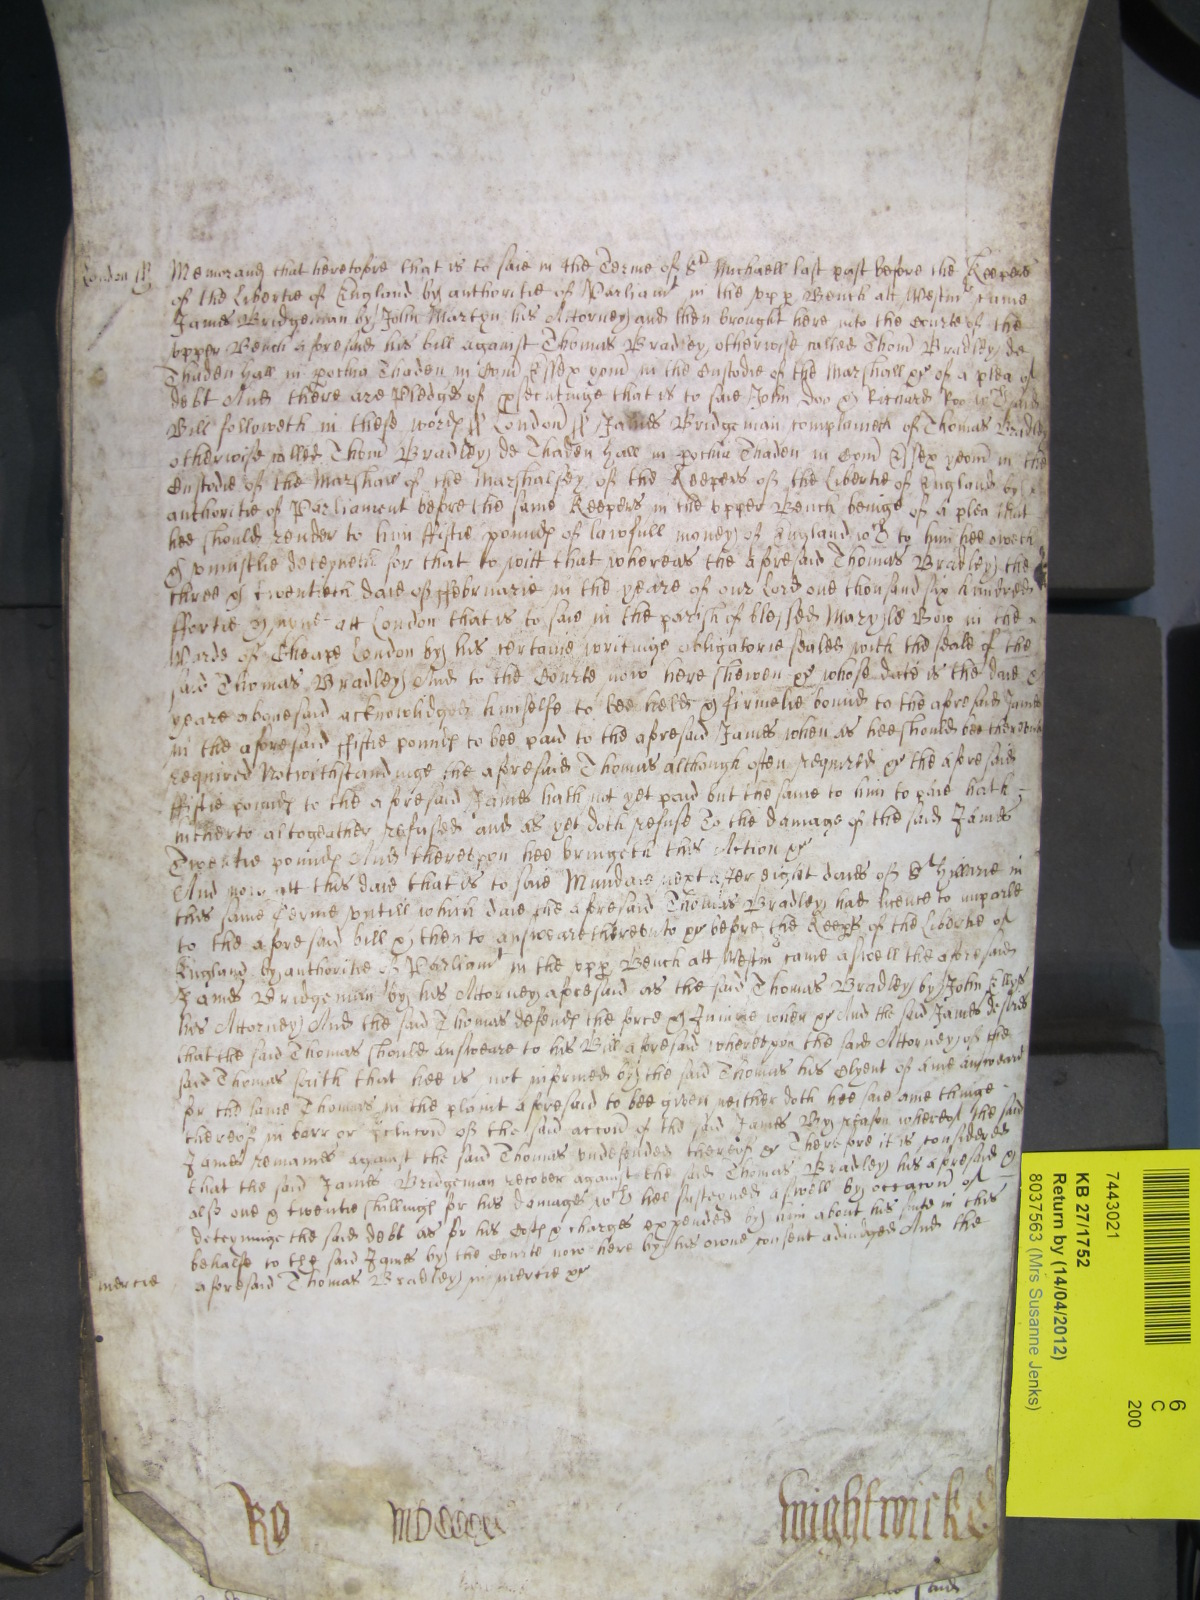 London ss Memorand that heretofore that is to saie in the Terme of St Michaell last past before the Keepers
of the Libertie of England by authoritie of Parliamt in the vpp Bench att Westmr came
James Bridgeman by John Martyn his Attorney and then brought here into the Courte of the
vpper Bench aforesaid his bill against Thomas Bradley otherwise called Thom Bradley de
Thaden Hall in pochia Thaden in Com Essex yeom in the Custodie of the Marshall &c of a plea of
debt And there are Pledges of psecutinge that is to saie John Doo & Richard Roo wch said
Bill followeth in these words ss London ss James Bridgeman complaineth of Thomas Bradley
otherwise called Thom Bradley de Thaden Hall in pochia Thaden in Com Essex yeom in the
Custodie of the Marshall of the Marshalsey of the Keepers of the Libertie of England by
authoritie of Parliament before the same Keepers in the vpper Bench beinge of a plea that
hee should render to him ffiftie pounds of lawfull money of England wch to him hee oweth
& vniustlie deteyneth for that to witt that whereas the aforesaid Thomas Bradley the
three & twentieth daie of ffebruarie in the yeare of our Lord one thousand six hundred
ffortie & nyne att London that is to saie in the parish of blessed Mary le Bow in the
Warde of Cheape London by his certaine writinge obligatorie sealed with the seale of the
said Thomas Bradley And to the Courte now here shewen &c whose date is the daie &
yeare abouesaid acknowlidged himselfe to bee held & firmelie bound to the aforesaid James
in the aforesaid ffiftie pounds to bee paid to the aforesaid James when as hee should bee therevnto
required Notwithstandinge the aforesaid Thomas although often required &c the aforesaid
ffiftie pounds to the aforesaid James hath not yet paid but the same to him to paie hath
hitherto altogeather refused and as yet doth refuse To the damage of the said James
Twentie pounds And therevpon hee bringeth this Action &c
And now att this daie that is to saie Mundaie next after eight daies of St Hillarie in
this same Terme vntill which daie the aforesaid Thomas Bradley had licence to imparle
to the aforesaid bill & then to answeare therevnto &c before the Keeps of the Libertie of
England by authoritie of Parliamt in the vpp Bench att Westmr came aswell the aforesaid
James Bridgeman by his Attorney aforesaid as the said Thomas Bradley by John
his Attorney And the said Thomas defends the force & Iniurie when &c And the said James desires
that the said Thomas should answeare to his Bill aforesaid wherevpon the said Attorney of the
said Thomas saith that hee is not informed by the said Thomas his Clyent of anie answeare
for the same Thomas in the plaint aforesaid to bee given neither doth hee saie anie thinge
thereof in barr or p'clucon of the said accon of the said James By reason whereof the said
James remaines against the said Thomas vndefended thereof &c Therefore it is considered
that the said James Bridgeman recover against the said Thomas Bradley his aforesaid &
also one & twentie shillings for his damages wch hee susteyned aswell by occacon of
deteyninge the said debt as for his Costs & charges expended by him about his suite in this
behalfe to the said James by the Courte now here by his owne consent adiudged And the
mercie aforesaid Thomas Bradley in mercie &c
RO MDCCCC Wightwicke
7443021
KB 27/1752
Return by (14/04/2012)
8037563 (Mrs Susanne Jenks)
6
C
200